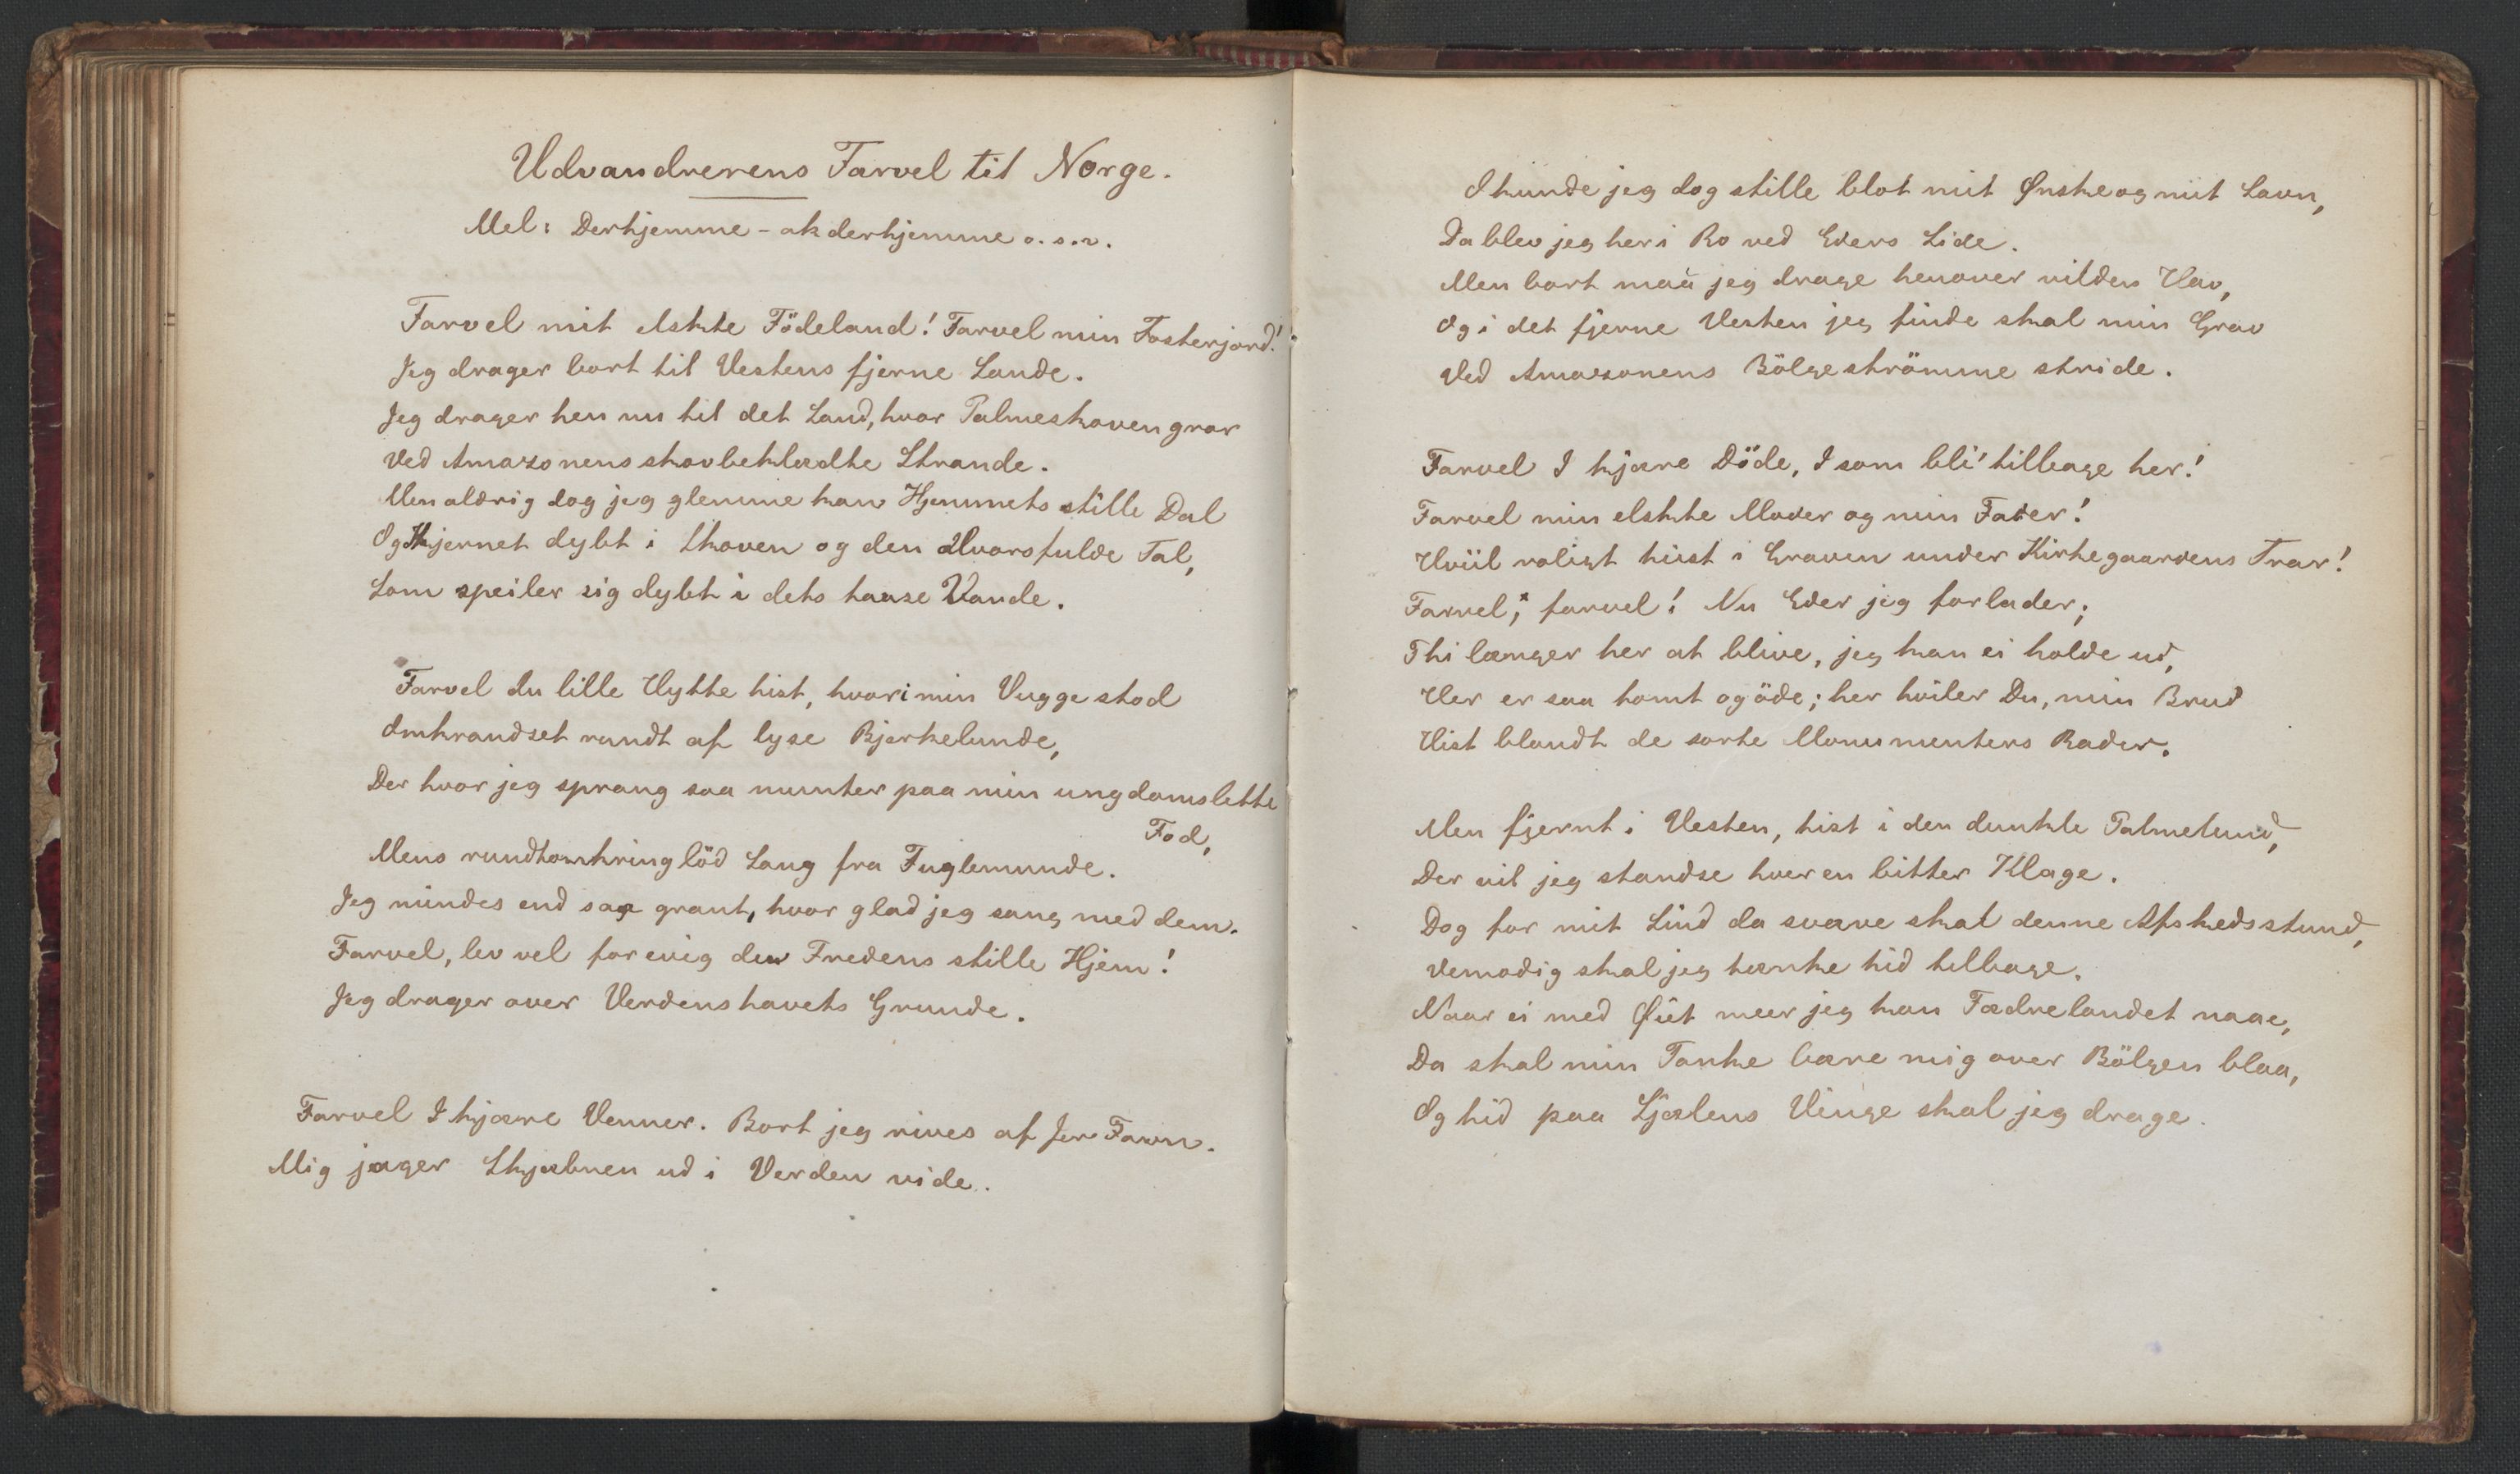 Udvandrerens Farvel til Norge.
Mel: Derhjemme - ak derhjemme o. s. v.
Farvel mit elskte Födeland! Farvel min Fosterjord!
Jeg drager bort til Vestens fjerne Lande.
Jeg drager hen nu til det Land, hvor Palmeskoven gror
Ved Amazonens skovbeklædte Strande.
Men aldrig dog jeg glemme kan Hjemmets stille Dal
Og Kjernet dybt i Skoven og den alvorsfulde Fal,
Som speiler sig dybt i dets taage Vande.
Farvel du lille Hytte hist, hvori min Vugge stod
Omkrandset rundt af lyse Bjerkelunde,
Der hvor jeg sprang saa munter paa min ungdomslette
Fod,
Mens rundtomkring löd Sang fra Fuglemunde.
Jeg mindes end saa grant, hvor glad jeg sang med dem.
Farvel, lev vel for evig du Fredens stille Hjem!
Jeg drager over Verdenshavets Grunde.
Farvel I kjære Venner. Bort jeg rives af Jer Favn.
Mig jager Skjæbnen ud i Verden vide.
O kunde jeg dog stille blot mit Ønske og mit Savn,
Da blev jeg her i Ro ved Eders Side.
Men bort maa jeg drage henover vilden Hav,
Og i det fjerne Vesten jeg finde skal min Grav
Ved Amazonens Bölgeströmme stride.
Farvel I kjære Döde, I som bli' tilbage her!
Farvel min elskte Moder og min Fader!
Hviil roligt hist i Graven under Kirkegaardens Trær!
Farvel, farvel! Nu Eder jeg forlader;
Thi længer her at blive, jeg kan ei holde ud,
Her er saa tomt og öde; her hviler Du, min Brud
Hist blandt de sorte Monumenters Rader.
Men fjernt i Vesten, hist i den dunkle Palmelund,
Der vil jeg standse hver en bitter Klage.
Dog for mit Sind da svæve skal denne Afskedsstund,
Vemodig skal jeg tænke hid tilbage.
Naar ei med Øiet meer jeg kan Fædrelandet naae,
Da skal min Tanke bære mig over Bölgen blaa,
Og hid paa Sjælens Vinge skal jeg drage.